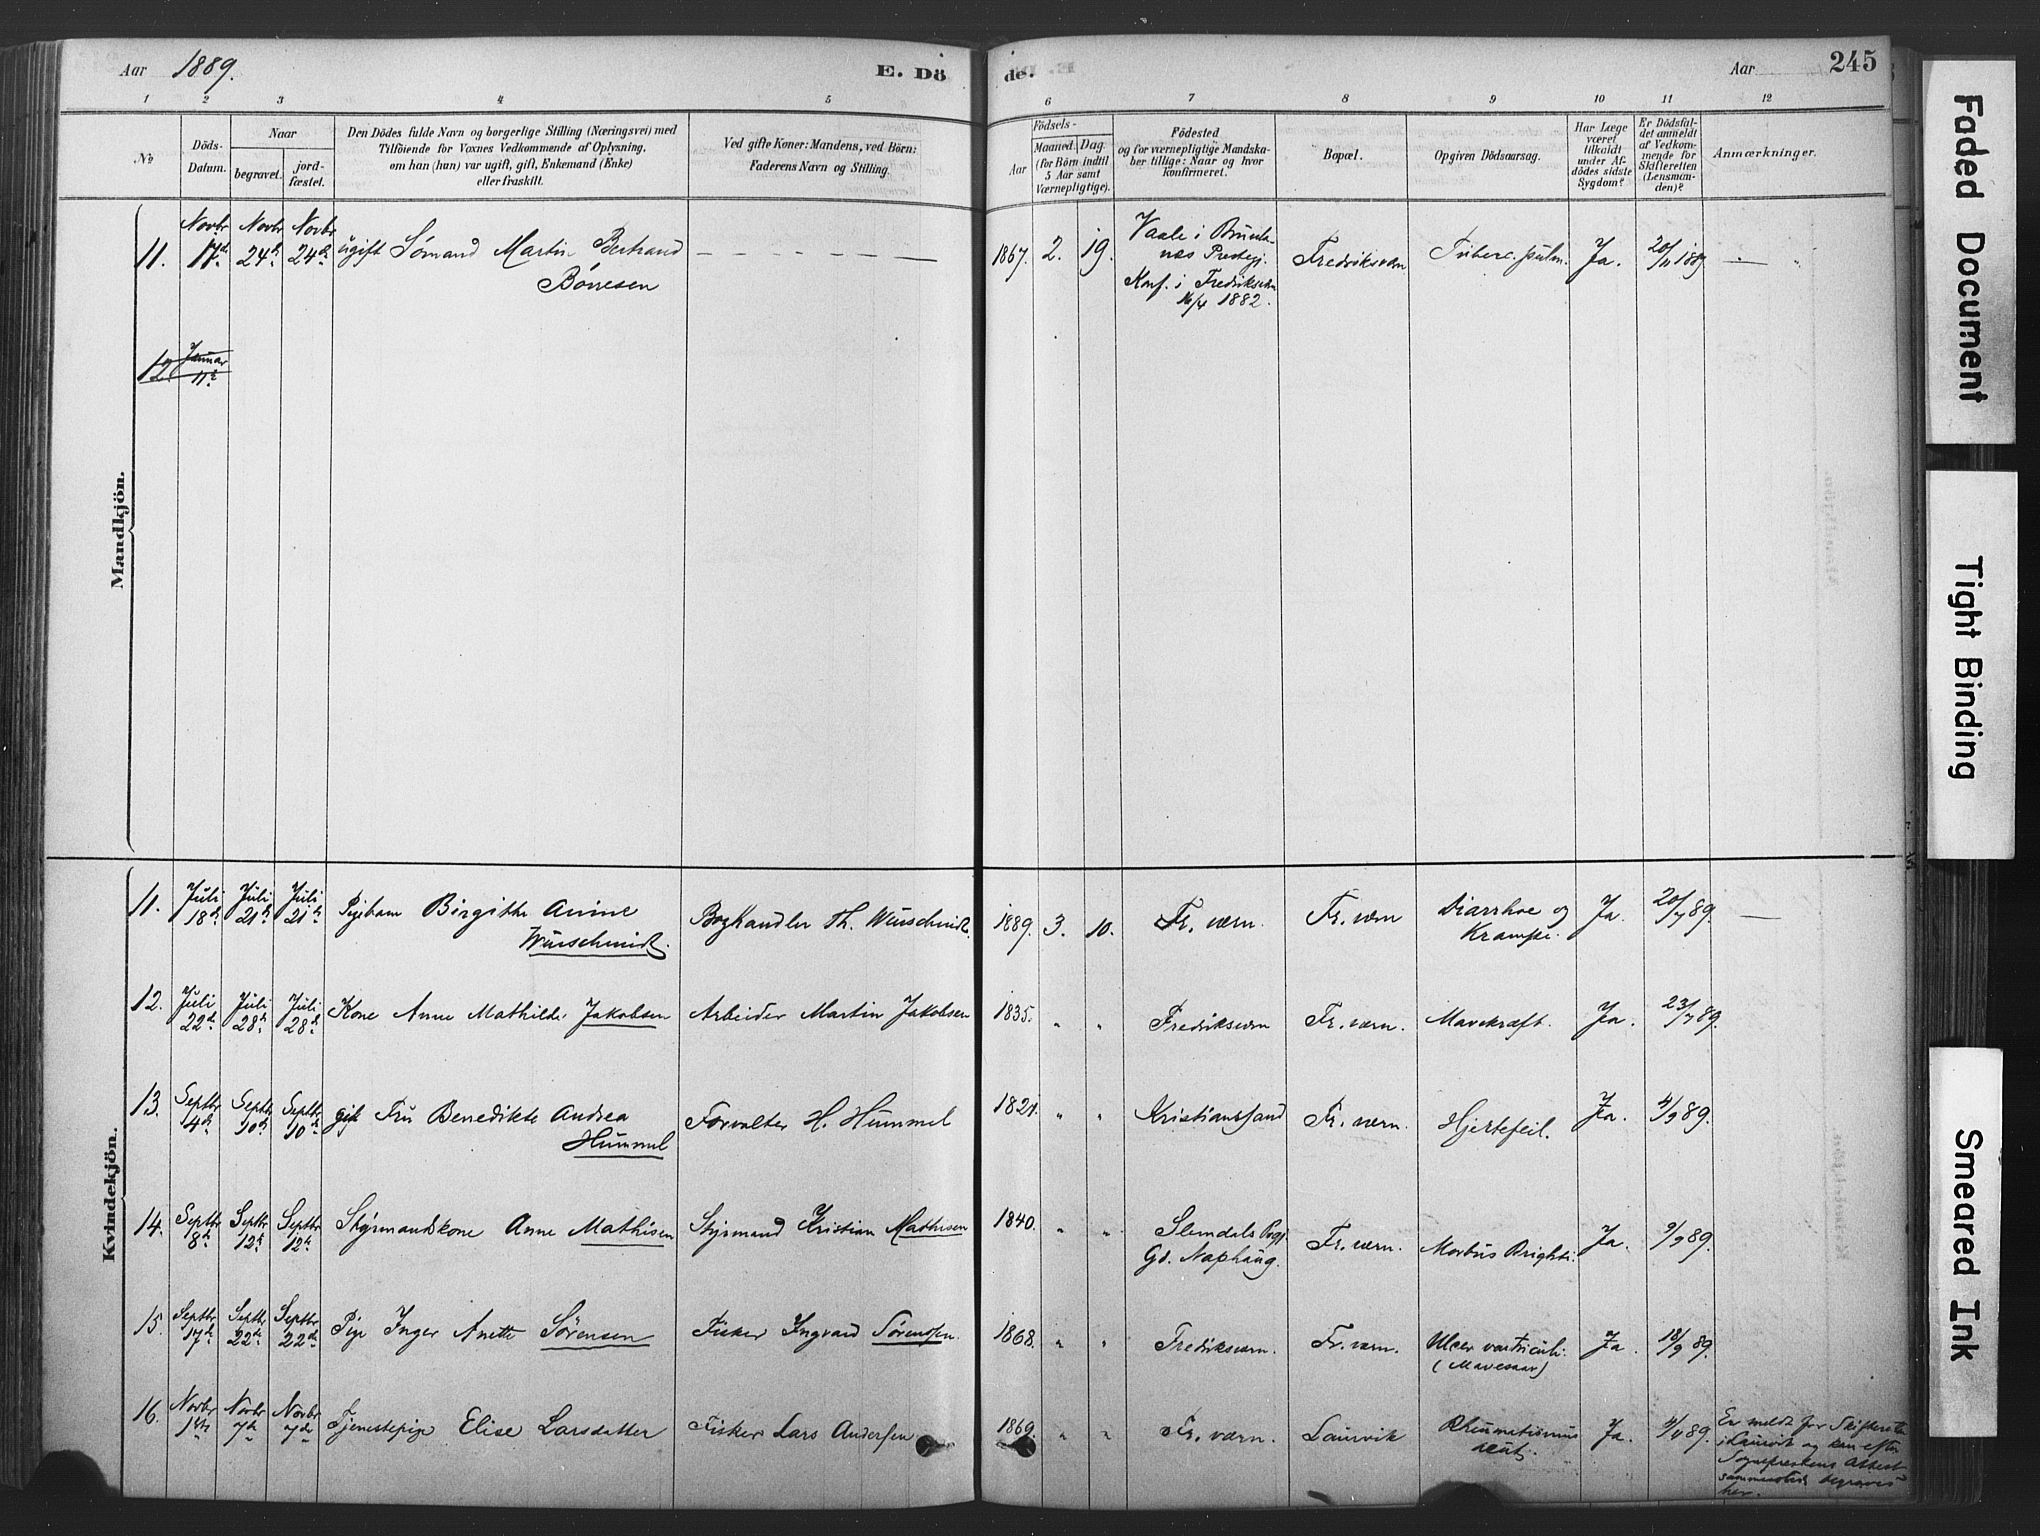 Aar 1889.
E. Dö
de.
Aar
245
1 2 3 4 5 6 7 8 9 10 11 12
No
Döds-
Datum.
Naar
begravet.
jord-
fæstet.
Den Dödes fulde Navn og borgerlige Stilling (Næringsvei) med
Tilföiende for Voxnes Vedkommende af Oplysning,
om han (hun) var ugift, gift, Enkemand (Enke)
eller fraskilt.
Ved gifte Koner: Mandens, ved Börn:
Faderens Navn og Stilling.
Födsels-
Aar
Maaned.
Dag.
(for Börn indtil
5 Aar samt
Værnepligtige).
Födested
og for værnepligtige Mandska-
ber tillige: Naar og hvor
konfirmeret.
Bopæl.
Opgiven Dödsaarsag.
Har Læge
været
tilkaldt
under Af-
dödes sidste
Sygdom?
Er Dödsfal-
det anmeldt
af Vedkom-
mende for
Skifteretten
(Lensman-
den)?
Anmærkninger.
Mandkjön.
11.
Novbr
17de
Novbr
24de
Novbr
24de
ugift Sømand Martin Bertrand
Bönesen
1867. 2. 19.
Vaale i Brunla-
næs Prestegj.
Konf. i Fredriksværn
16/4 1882.
Fredriksværn
Tuberc. pulm.
Ja.
20/11 1889
12
Januar
11te
Kvindekjön.
11.
Juli
18de
Juli
21de
Juli
21de
Pigebarn Birgitte Anine
Wurschmidt.
Boghandler Th. Wurschmidt.
1889. 3. 10.
Fr. værn.
Fr. værn
Diarrhoe og
Krampe.
Ja.
20/7 89.
12.
Juli
22de
Juli
28de
Juli
28de
Kone Anne Mathilde Jakobsen
Arbeider Martin Jakobsen
1835. " "
Fredriksværn
Fr. værn.
Mavekræft.
Ja.
23/7 89.
13.
Septbr
4de
Septbr
10de
Septbr
10de
gift Fru Benedikte Andrea
Hummel
Forvalter H. Hummel
1821. " "
Kristianssand
Fr. værn.
Hjertefeil.
Ja.
4/9 89.
14.
Septbr
8de
Septbr
12te
Septbr
12te
Styrmandskone Anne Mathisen
Styrmand Kristian Mathisen
1840. " "
Slemdals Prgj.
Gd. Naphaug.
Fr. værn.
Morbus Brightii.
Ja.
9/9 89.
15.
Septbr
17de
Septbr
22de
Septbr
22de
Pige Inger Anette Sörensen
Fisker Ingvard Sørenssen.
1868. " "
Fredriksværn.
Fr. værn.
Ulcer ventriculi.
(Mavesaar)
Ja.
18/9 89.
16.
Novbr
1ste
Novbr
7de
Novbr
7de
Tjenestepige Elise Larsdatter
Fisker Lars Anderssen
1869. " "
Fr. værn.
Laurvik
Rheumatismus
acut.
Ja.
4/11 89.
Er meldt for Skifteretten
i Laurvik og kan efter
Sognepræstens Attest
sammesteds begraves
her.
Faded Document
Tight Binding
Smeared Ink